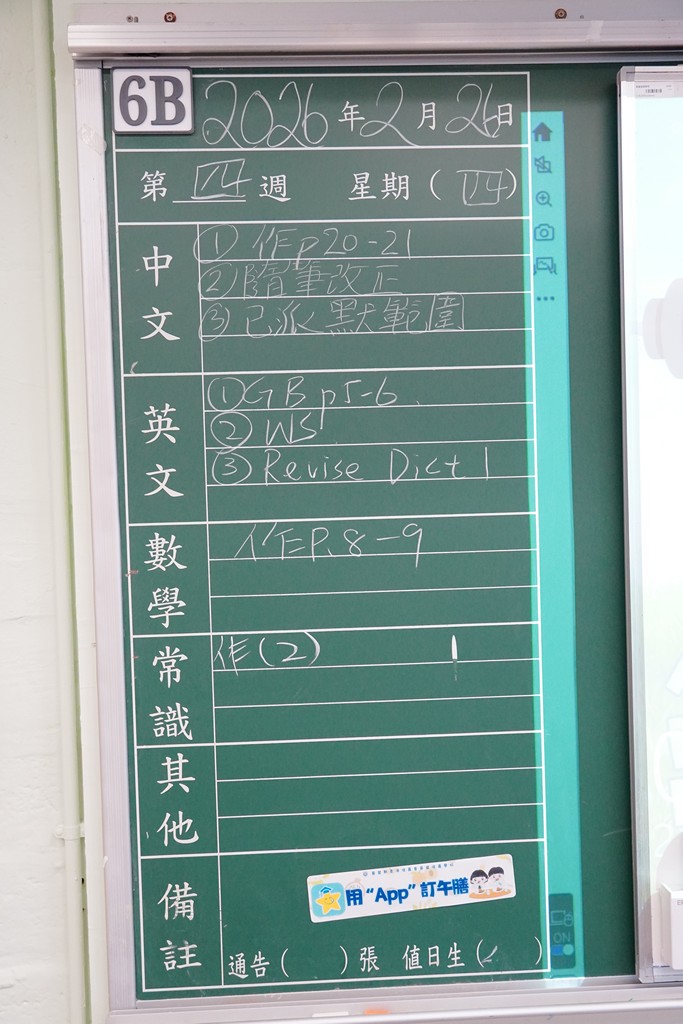 6B 2026年2月26日
第 四 週 星期(四)
中文
① 作p20-21
② 隨筆改正
③ 已派默範圍
英文
① GB p5-6.
② WS
③ Revise Dict 1
數學
作P.8-9
常識
作(2)
其他
備註
用“App”訂午膳
通告( )張 值日生( )
ON